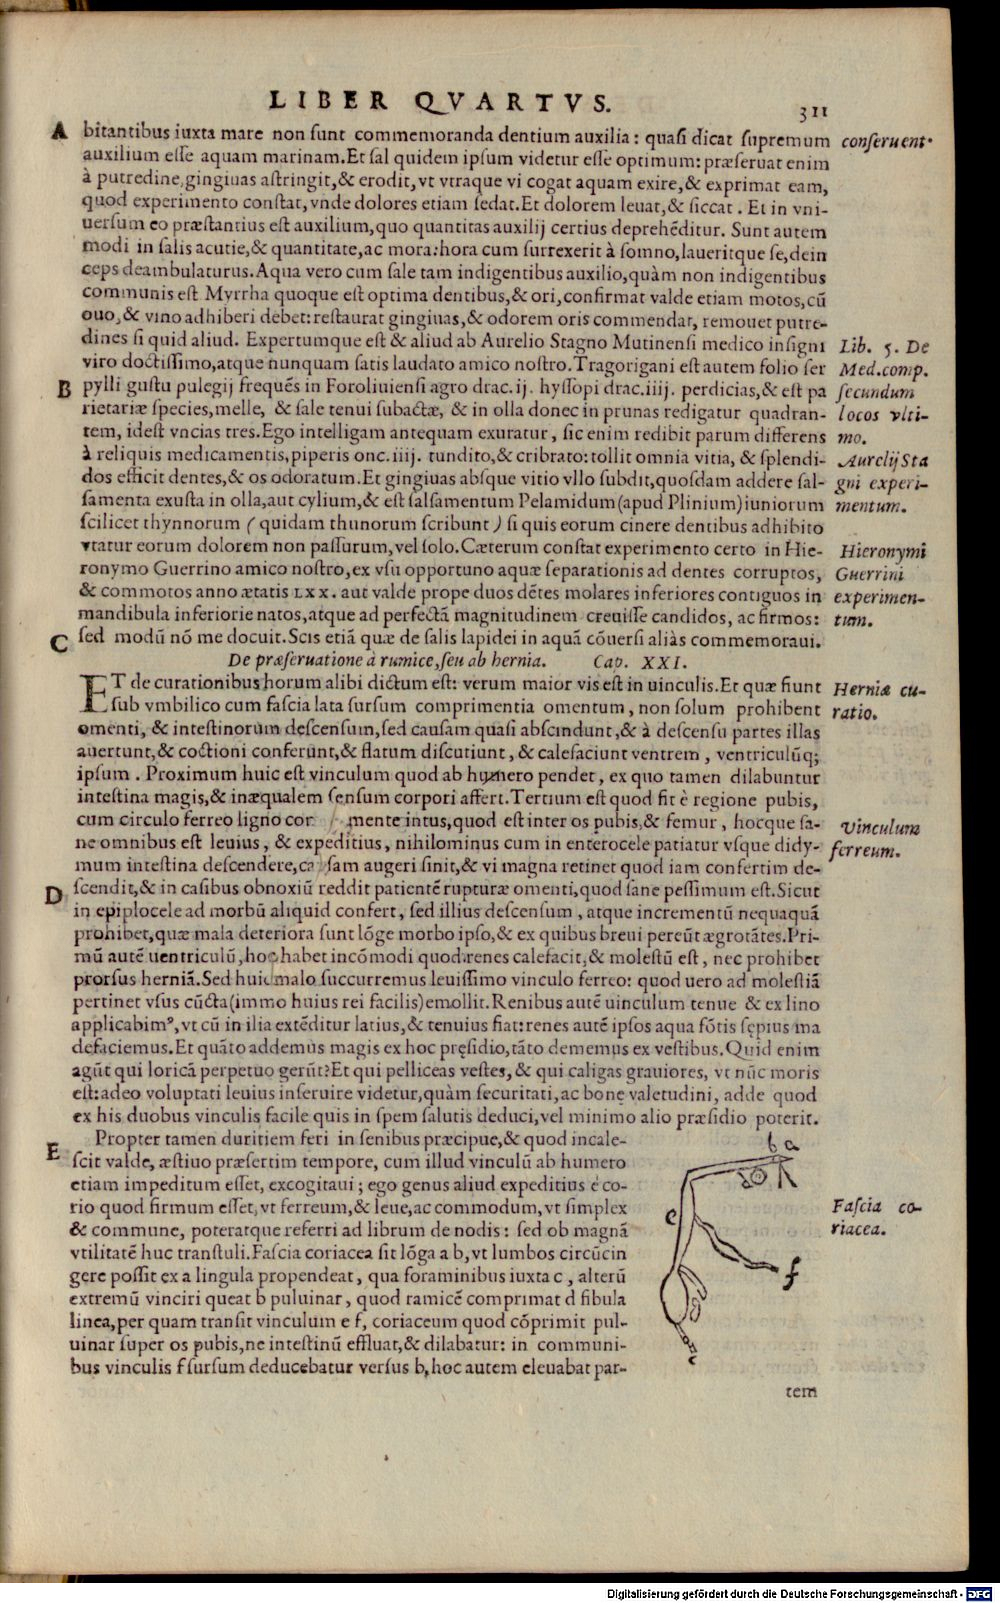 LIBER QVARTVS. 311
A bitantibus iuxta mare non sunt commemoranda dentium auxilia: quasi dicat supremum
conseruent.
auxilium esse aquam marinam.Et sal quidem ipsum videtur esse optimum: præseruat enim
à putredine,gingiuas astringit,& erodit,vt vtraque vi cogat aquam exire,& exprimat eam,
quod experimento constat,vnde dolores etiam sedat.Et dolorem leuat,& siccat. Et in vni-
uersum eo præstantius est auxilium,quo quantitas auxilij certius deprehēditur. Sunt autem
modi in salis acutie,& quantitate,ac mora:hora cum surrexerit à somno,laueritque se,dein
ceps deambulaturus.Aqua vero cum sale tam indigentibus auxilio,quàm non indigentibus
communis est Myrrha quoque est optima dentibus,& ori,confirmat valde etiam motos,cū
ouo,& vino adhiberi debet:restaurat gingiuas,& odorem oris commendat, remouet putre-
dines si quid aliud. Expertumque est & aliud ab Aurelio Stagno Mutinensi medico insigni
Lib. 5. De
viro doctissimo,atque nunquam satis laudato amico nostro.Tragorigani est autem folio ser
Med.comp.
B pylli gustu pulegij frequēs in Foroliuiensi agro drac.ij. hyssopi drac.iiij. perdicias,& est pa
secundum
rietariæ species,melle, & sale tenui subactæ, & in olla donec in prunas redigatur quadran-
locos vlti-
tem, idest vncias tres.Ego intelligam antequam exuratur, sic enim redibit parum differens
mo.
à reliquis medicamentis,piperis onc.iiij. tundito,& cribrato:tollit omnia vitia, & splendi-
Aurelij Sta
dos efficit dentes,& os odoratum.Et gingiuas absque vitio vllo subdit,quosdam addere sal-
gni experi-
samenta exusta in olla,aut cylium,& est salsamentum Pelamidum(apud Plinium)iuniorum
mentum.
scilicet thynnorum ( quidam thunorum scribunt ) si quis eorum cinere dentibus adhibito
vtatur eorum dolorem non passurum,vel solo.Cæterum constat experimento certo in Hie-
Hieronymi
ronymo Guerrino amico nostro,ex vsu opportuno aquæ separationis ad dentes corruptos,
Guerrini
& commotos anno ætatis LXX. aut valde prope duos dētes molares inferiores contiguos in
experimen-
mandibula inferiorie natos,atque ad perfectā magnitudinem creuisse candidos, ac firmos:
tum.
C sed modū nō me docuit.Scis etiā quæ de salis lapidei in aquā cōuersi aliàs commemoraui.
De præseruatione à rumice,seu ab hernia. Cap. XXI.
ET de curationibus horum alibi dictum est: verum maior vis est in uinculis.Et quæ fiunt
Herniæ cu-
sub vmbilico cum fascia lata sursum comprimentia omentum, non solum prohibent
ratio.
omenti, & intestinorum descensum,sed causam quasi abscindunt,& à descensu partes illas
auertunt,& coctioni conferunt,& flatum discutiunt, & calefaciunt ventrem, ventriculūq;
ipsum. Proximum huic est vinculum quod ab humero pendet, ex quo tamen dilabuntur
intestina magis,& inæqualem sensum corpori affert.Tertium est quod fit è regione pubis,
cum circulo ferreo ligno cor mente intus,quod est inter os pubis,& femur, hocque sa-
Vinculum
ne omnibus est leuius, & expeditius, nihilominus cum in enterocele patiatur vsque didy-
ferreum.
mum intestina descendere,causam augeri sinit,& vi magna retinet quod iam confertim de-
D scendit,& in casibus obnoxiū reddit patientē rupturæ omenti,quod sane pessimum est.Sicut
in epiplocele ad morbū aliquid confert, sed illius descensum, atque incrementū nequaquā
prohibet,quæ mala deteriora sunt lōge morbo ipso,& ex quibus breui pereūt ægrotātes.Pri-
mū autē uentriculū,hoc habet incōmodi quod renes calefacit,& molestū est, nec prohibet
prorsus herniā.Sed huic malo succurremus leuissimo vinculo ferreo: quod uero ad molestiā
pertinet vsus cūcta(immo huius rei facilis)emollit.Renibus autē uinculum tenue & ex lino
applicabimꝰ,vt cū in ilia extēditur latius,& tenuius fiat:renes autē ipsos aqua fōtis sępius ma
defaciemus.Et quāto addemus magis ex hoc pręsidio,tāto dememus ex vestibus.Quid enim
agūt qui loricā perpetuo gerūt?Et qui pelliceas vestes,& qui caligas grauiores, vt nūc moris
est:adeo voluptati leuius inseruire videtur,quàm securitati,ac bone valetudini, adde quod
ex his duobus vinculis facile quis in spem salutis deduci,vel minimo alio præsidio poterit.
E Propter tamen duritiem feri in senibus præcipue,& quod incale-
scit valde, æstiuo præsertim tempore, cum illud vinculū ab humero
etiam impeditum esset, excogitaui; ego genus aliud expeditius è co-
rio quod firmum esset, vt ferreum,& leue,ac commodum,vt simplex
Fascia co-
& commune, poteratque referri ad librum de nodis: sed ob magnā
riacea.
vtilitatē huc transtuli.Fascia coriacea sit lōga a b,vt lumbos circūcin
gere possit ex a lingula propendeat, qua foraminibus iuxta c, alterū
extremū vinciri queat b puluinar, quod ramicē comprimat d fibula
linea,per quam transit vinculum e f, coriaceum quod cōprimit pul-
uinar super os pubis,ne intestinū effluat,& dilabatur: in communi-
bus vinculis f sursum deducebatur versus b,hoc autem eleuabat par-
b a
e
f
c
tem
Digitalisierung gefördert durch die Deutsche Forschungsgemeinschaft - DFG